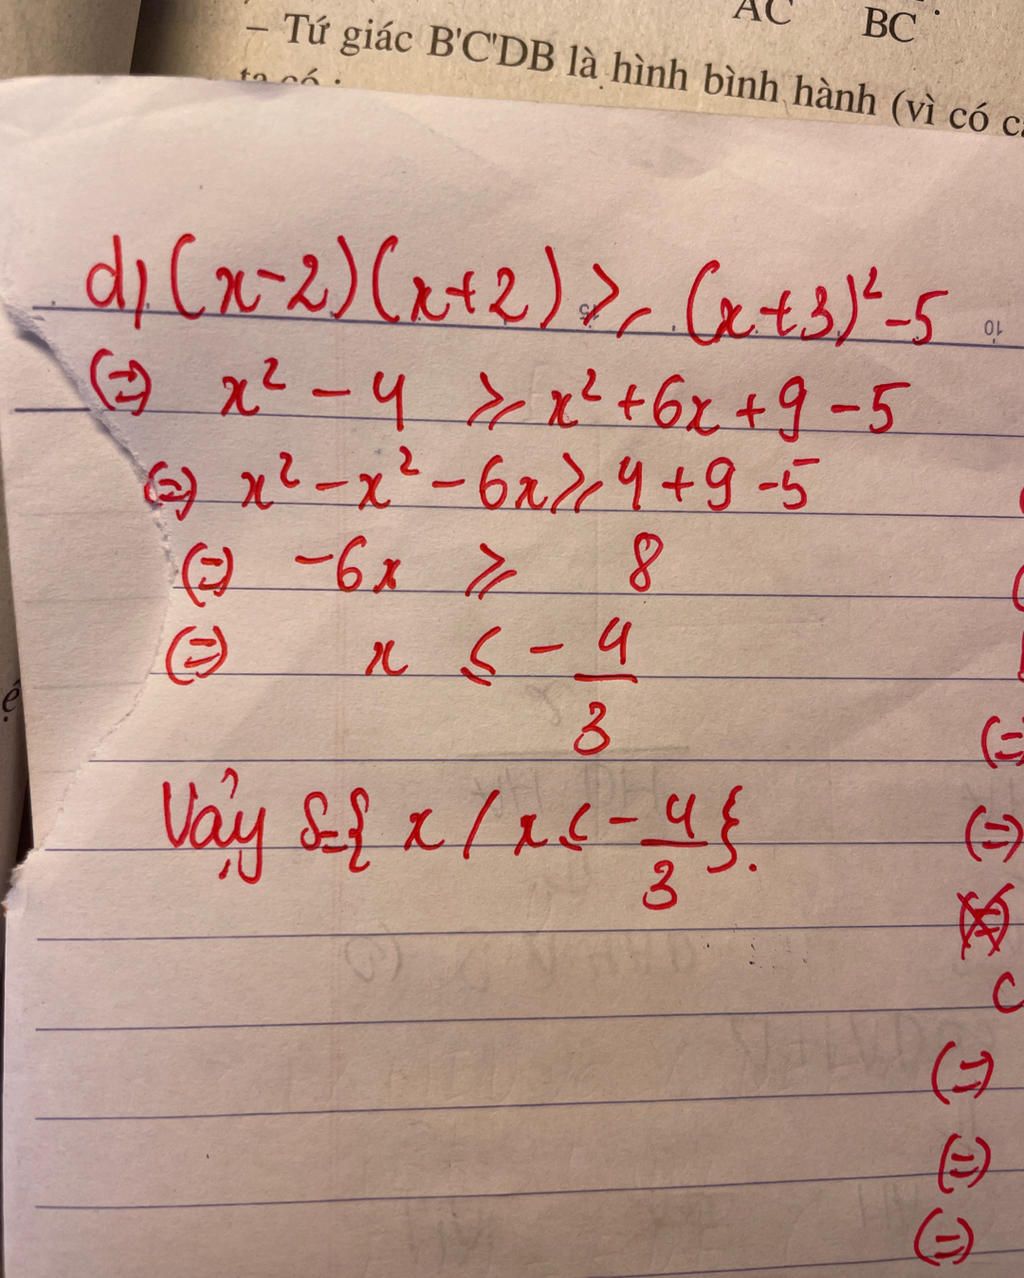 AC BC .
– Tứ giác B'C'DB là hình bình hành (vì có
ta có :
d) (x-2)(x+2) ≥ (x+3)² -5
(=) x² - 4 ≥ x² + 6x + 9 - 5
(=) x² - x² - 6x ≥ 4 + 9 - 5
(=) -6x ≥ 8
(=) x ≤ - 4/3
Vậy S={ x / x ≤ - 4/3 }.
(=)
(=)
(=)
(=)
(=)